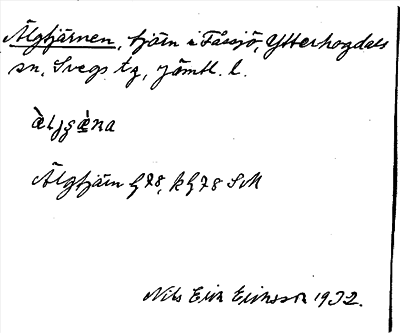 Älgtjärnen, tjärn i Fåssjö, Ytterhogdals
sn, Svegs tg, Jämtl. l.
Älgtjärn G 78, k G 78 SM
Nils Erik Eriksson 1932.